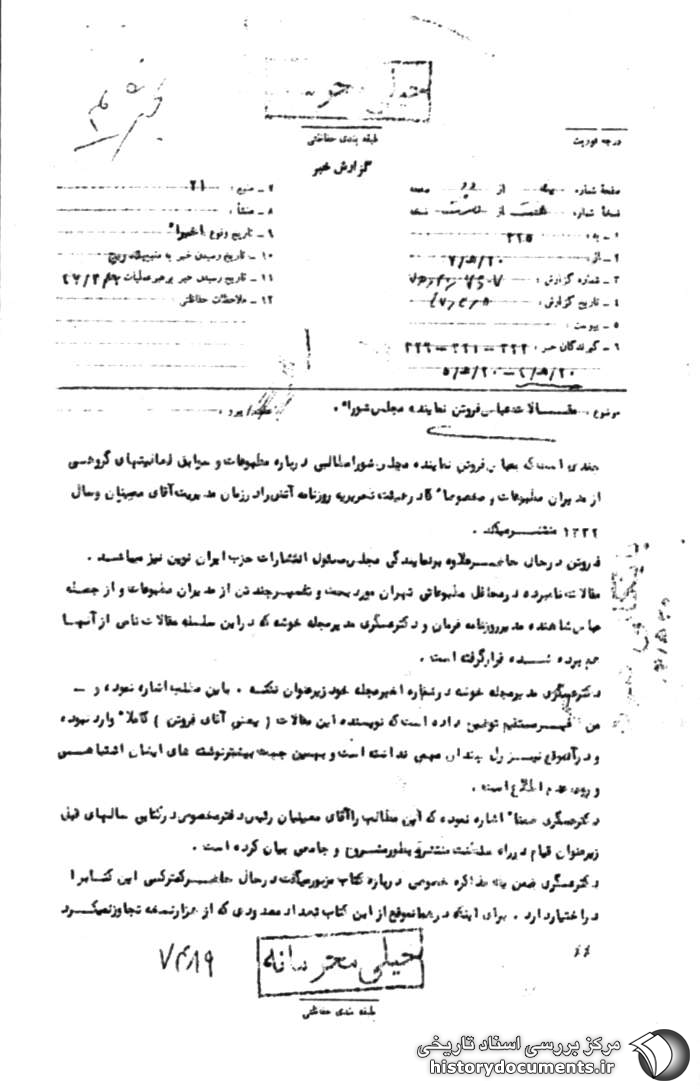 خیلی محرمانه
طبقه بندی حفاظتی
درجه فوریت
گزارش خبر
صفحه شماره از صفحه
نسخه شماره هشت از نسخه
۱ ـ به : ۳۲۵
۲ ـ از : ۲۰/ه‍/۲
۳ ـ شماره گزارش :
۴ ـ تاریخ گزارش :
۵ ـ پیوست
۶ ـ گیرندگان خبر : ۳۲۲ - ۳۲۱ -
۲۰/ه‍/۴ - ۲۰/ه‍/۵
۷ ـ منبع : ۲۱
۸ ـ منشأ :
۹ ـ تاریخ وقوع اخیرا"
۱۰ ـ تاریخ رسیدن خبر به منبع
۱۱ ـ تاریخ رسیدن خبر برهبر عملیات
۱۲ ـ ملاحظات حفاظتی
موضوع : مقالات عباس فروتن نماینده مجلس شورا .
چندی است که عباس فروتن نماینده مجلس شورا مطالبی درباره مطبوعات و سوابق فعالیتهای گروهی
از مدیران مطبوعات و مخصوصا" کادر هیئت تحریریه روزنامه آتش را در زمان مدیریت آقای معینیان و سال
۱۳۳۲ منتشر میکند .
فروتن در حال حاضر علاوه بر نمایندگی مجلس مسئول انتشارات حزب ایران نوین نیز میباشد .
مقالات نامبرده در محافل مطبوعاتی تهران مورد بحث و تفسیر چند تن از مدیران مطبوعات و از جمله
عباس شاهنده مدیر روزنامه فرمان و دکتر عسگری مدیر مجله خوشه که در این سلسله مقالات نامی از آنها
برده شده قرار گرفته است .
دکتر عسگری مدیر مجله خوشه در شماره اخیر مجله خود زیر عنوان نکته . باین مطلب اشاره نموده و -
من غیر مستقیم توضیح داده است که نویسنده این مقالات ( یعنی آقای فروتن ) کاملا" وارد نبوده
و در آنموقع نیز رل چندان مهمی نداشته است و بهمین جهت بیشتر نوشته های ایشان اشتباه است
و روی عدم اطلاع است .
دکتر عسگری ضمنا" اشاره نموده که این مطالب را آقای معینیان رئیس دفتر مخصوص در کتابی سالهای قبل
زیر عنوان قیام در راه سلطنت منتشر و بطور مشروح و جامعی بیان کرده است .
دکتر عسگری ضمن یک مذاکره خصوصی درباره کتاب مزبور میگفت در حال حاضر کمتر کسی این کتاب را
در اختیار دارد . برای اینکه در همانموقع از این کتاب تعداد معدودی که از هزار نسخه تجاوز نمیکرد
خیلی محرمانه
۷۴۸۹
طبقه بندی حفاظتی
مرکز بررسی اسناد تاریخی
historydocuments.ir